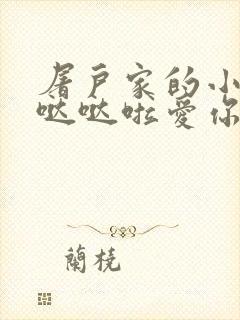 屠戶家的小
哒哒啦爱你
蘭橈